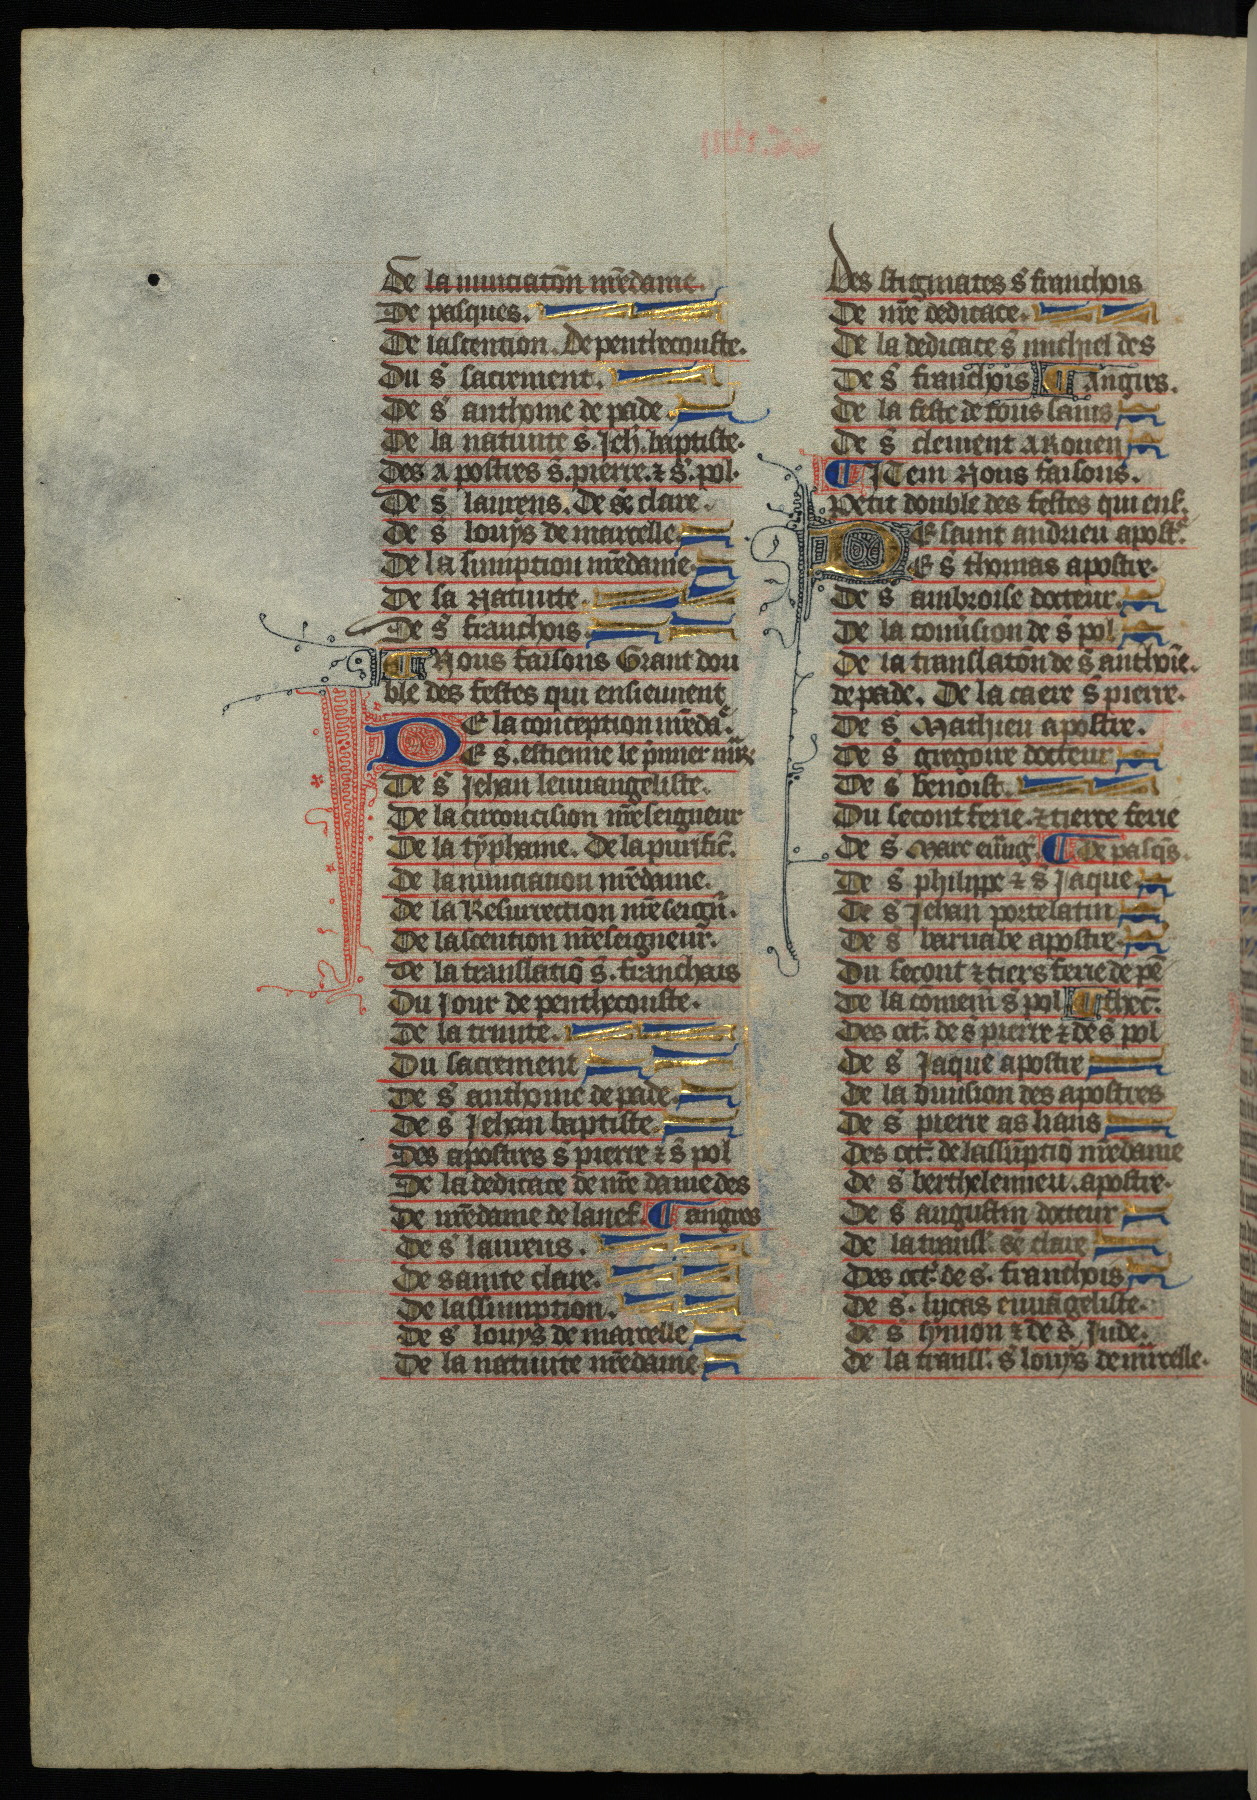 De la nunciatõn nr̃edame.
De pasques.
De lascention. De penthecouste.
Du s̃ sacrement.
De s̃ anthoine de pade
De la natiuite s̃. Jeh̃. baptiste.
Des apostres s̃. pierre. ⁊ s̃. pol.
De s̃ laurens. De sẽ clare.
De s̃ louys de marcelle
De la sumption nr̃edame.
De la Natiuite.
De s̃ franchois.
¶ Nous faisons Grant dou
ble des festes qui ensieuuent
DE la conception nr̃eda.
E s̃. estienne le p̃mier mr̃
De s̃ Jehan leuuangeliste.
De la circoncision nr̃eseigneur
De la typhaine. De la purific̃.
De la nunciation nr̃edame.
De la Resurrection nr̃eseign̄.
De lascention nr̃eseigneur.
De la translatiõ s̃. franchois
Du Jour de penthecouste.
De la trinite.
Du sacrement
De s̃ anthoine de pade
De s̃ Jehan baptiste.
Des apostres s̃ pierre ⁊ s̃ pol
De la dedicace de nr̃e dame des
De nr̃edame de lanef. ¶ angres
De s̃ laurens.
De sainte clare.
De lassumption.
De s̃ louys de marcelle
De la natiuite nr̃edame
Des stigmates s̃ franchois
De nr̃e dedicace.
De la dedicace s̃ michiel des
De s̃ franchois ¶ angres.
De la feste de tous sains
De s̃ clement a Rouen
¶ JTem Nous faisons.
Petit double des festes qui ens̃.
DE saint andrieu apost̃.
E s̃ thomas apostre.
De s̃ ambroise docteur.
De la comũsion de s̃ pol
De la translatõn de s̃ anthoiẽ.
de pade. De la caere s̃ pierre.
De s̃ Mathieu apostre.
De s̃ gregoire docteur
De s̃ benoist.
Du secont ferie. ⁊ tierce ferie
De s̃ Marc euũg̃. ¶ De pasq̃s.
De s̃ philippe ⁊ s̃ Jaque
De s̃ Jehan portelatin
De s̃ barnabe apostre.
Du secont ⁊ tiers ferie de pẽ
De la cõmem̃ s̃ pol ¶ thec̃.
Des oct̃. de s̃ pierre ⁊ de s̃ pol
De s̃ Jaque apostre
De la diuision des apostres
De s̃ pierre as lians
Des oct̃. de lassũptiõ nr̃edame
De s̃ berthelemieu. apostre.
De s̃ augustin docteur
De la transl̃. sẽ clare
Des oct̃. de s̃. franchois
De s̃. lucas euuãgeliste.
De s̃ symon ⁊ de s̃. Jude.
De la transl̃. s̃ louys de mr̃celle.